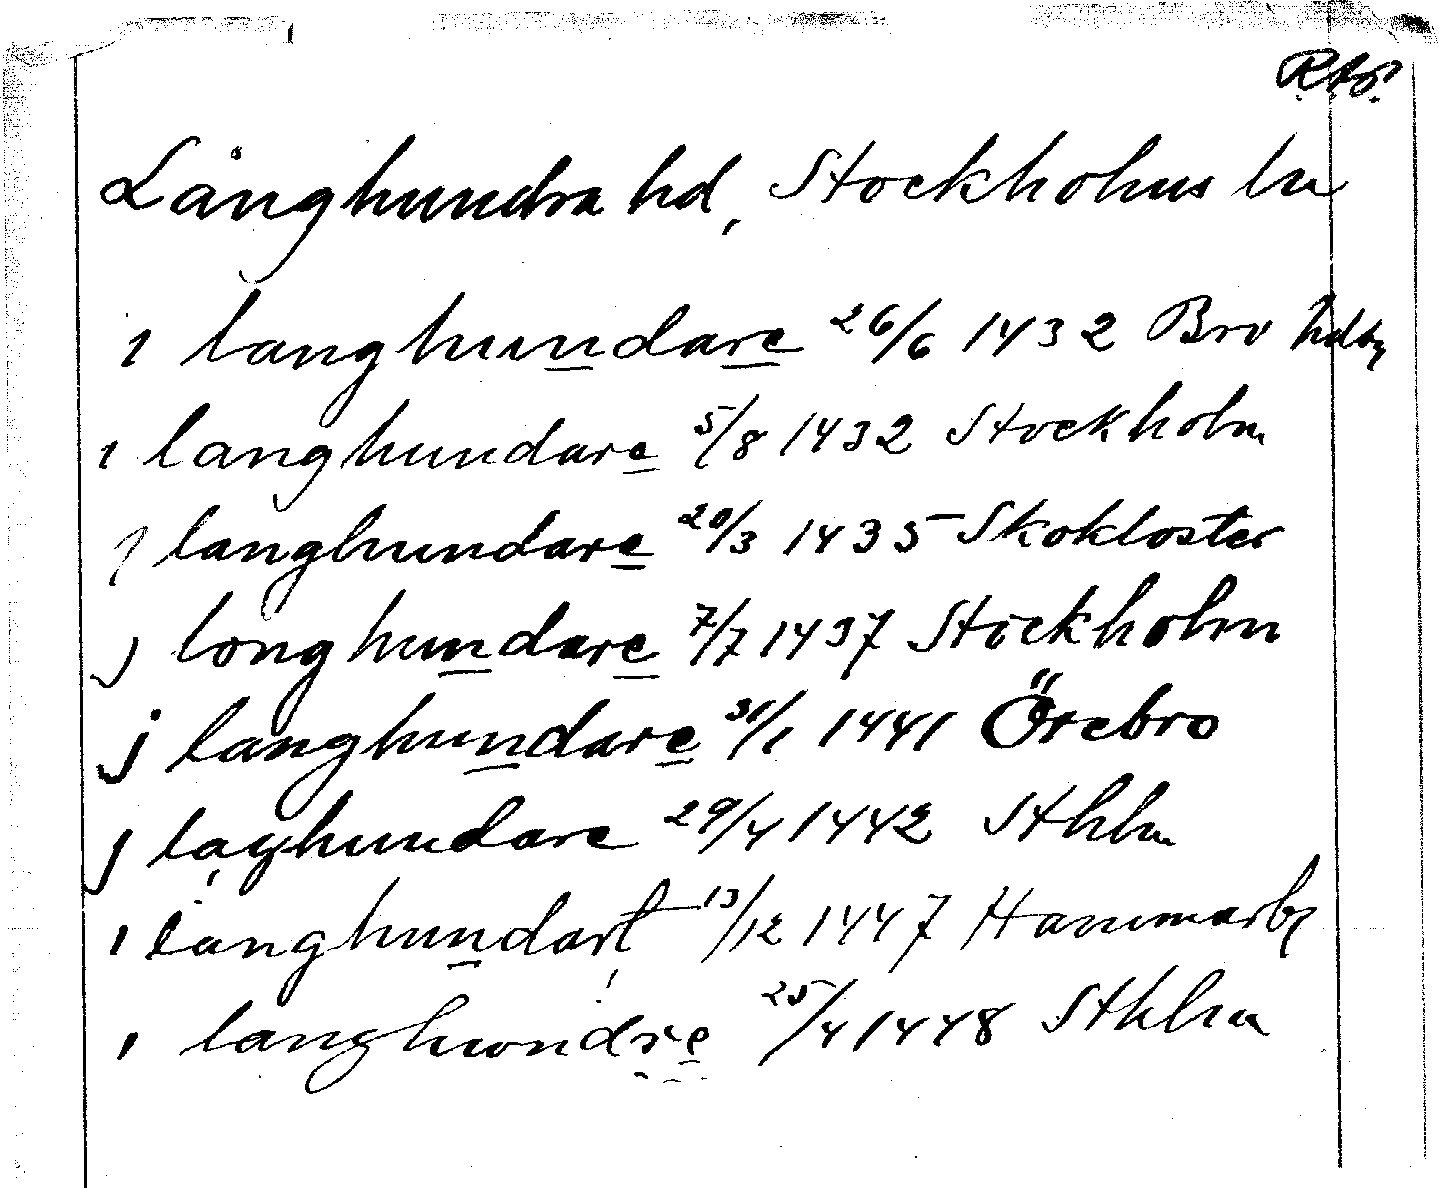 R.A.P.
Långhundra hd, Stockholms län
i langhundare 26/6 1432 Bro hdby
i langhundare 5/8 1432 Stockholm
j langhundare 20/3 1435 Skokloster
j longhundare 7/7 1437 Stockholm
j langhundare 31/1 1441 Örebro
j laghundare 29/4 1442 Sthlm
i langhundart 13/12 1447 Hammarby
i langhwndre 25/4 1448 Sthlm